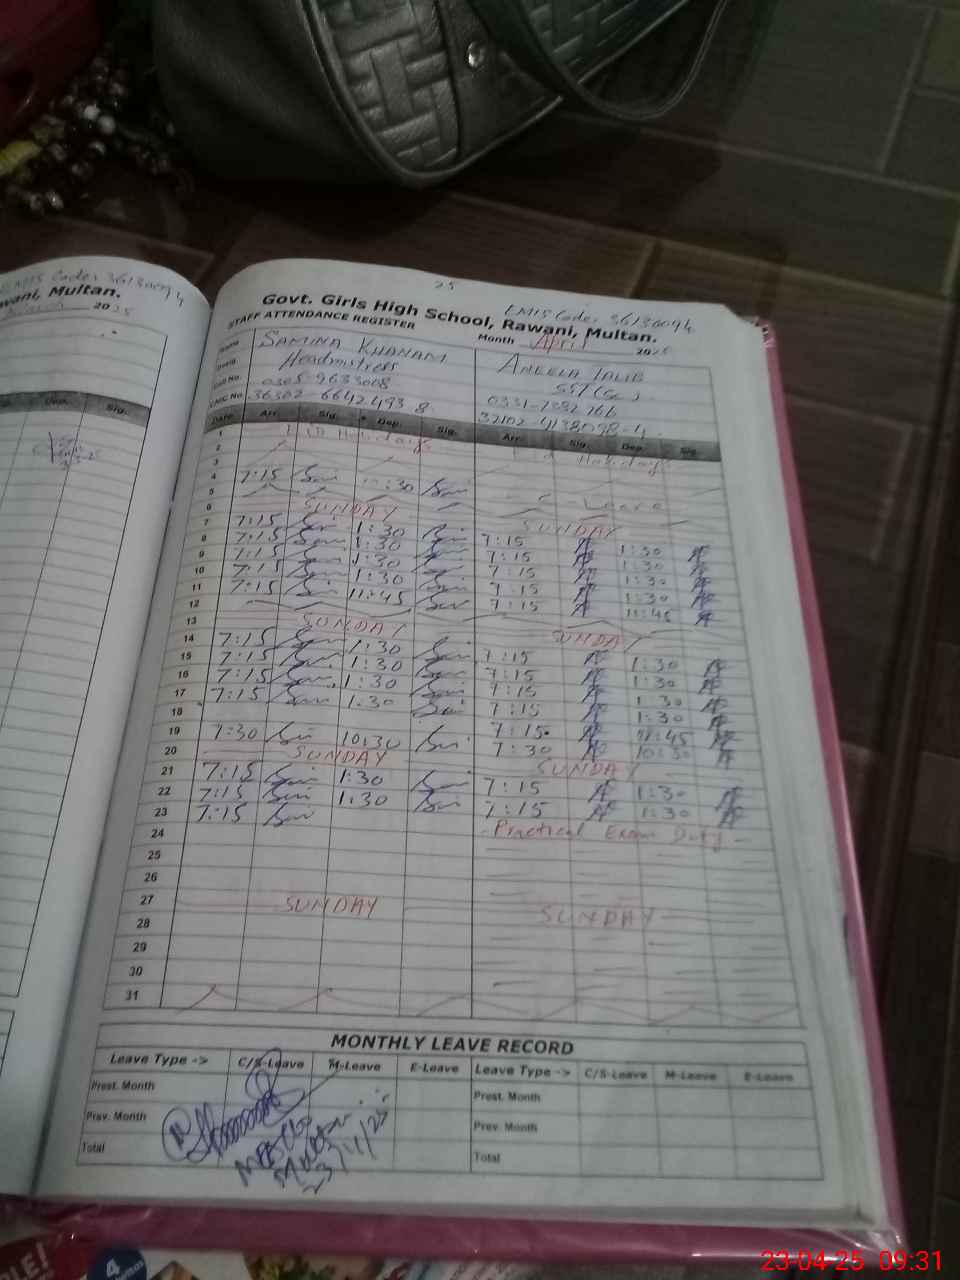 EMIS Code: 36130094
Multan.
2025
Dep. Sig.
25
EMIS Code: 36130094
Govt. Girls High School, Rawani, Multan.
STAFF ATTENDANCE REGISTER Month April 2025
Name SAMINA KHANAM ANEELA
Headmistress SST (Sc)
0305-9633008
CNIC No 36302-6642493-8 32102-4138098-4
Date Arr. Sig. Dep. Sig. Arr. Sig. Dep. Sig.
1
2 Eid Holidays Eid Holidays
3
4 7:15 Leave
5
6 SUNDAY SUNDAY
7 7:15 1:30 7:15 1:30
8 7:15 1:30 7:15 1:30
9 7:15 1:30 7:15 1:30
10 7:15 1:30 7:15 1:30
11 7:15 11:45 7:15 11:45
12
13 SUNDAY SUNDAY
14 7:15 1:30 7:15 1:30
15 7:15 1:30 7:15 1:30
16 7:15 1:30 7:15 1:30
17 7:15 1:30 7:15 1:30
18 7:15 11:45
19 7:30 10:30 7:30 10:30
20 SUNDAY SUNDAY
21 7:15 1:30 7:15 1:30
22 7:15 1:30 7:15 1:30
23 7:15 Practical Exam Duty
24
25
26
27 SUNDAY SUNDAY
28
29
30
31
MONTHLY LEAVE RECORD
Leave Type -> C/S-Leave M-Leave E-Leave Leave Type -> C/S-Leave M-Leave E-Leave
Prest. Month Prest. Month
Prev. Month Prev. Month
Total Total
Multan
4
23-04-25 09:31